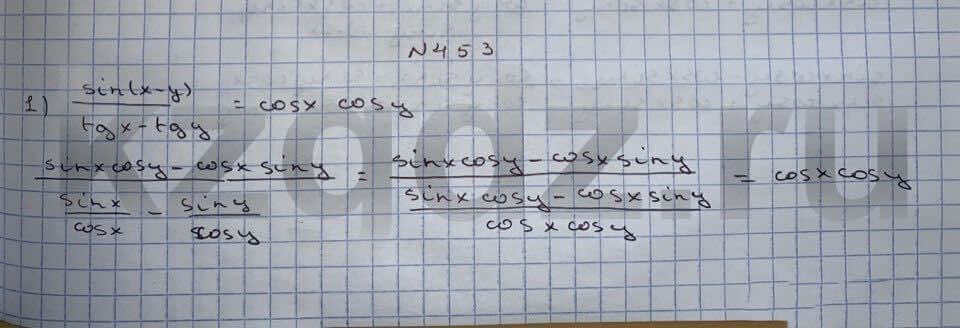 N453
1) sin(x-y) / tgx-tgy = cosx cosy
(sinxcosy - cosx siny) / (sinx/cosx - siny/cosy) = (sinxcosy - cosxsiny) / ((sinxcosy - cosxsiny) / cosxcosy) = cosxcosy
kzgdz.ru